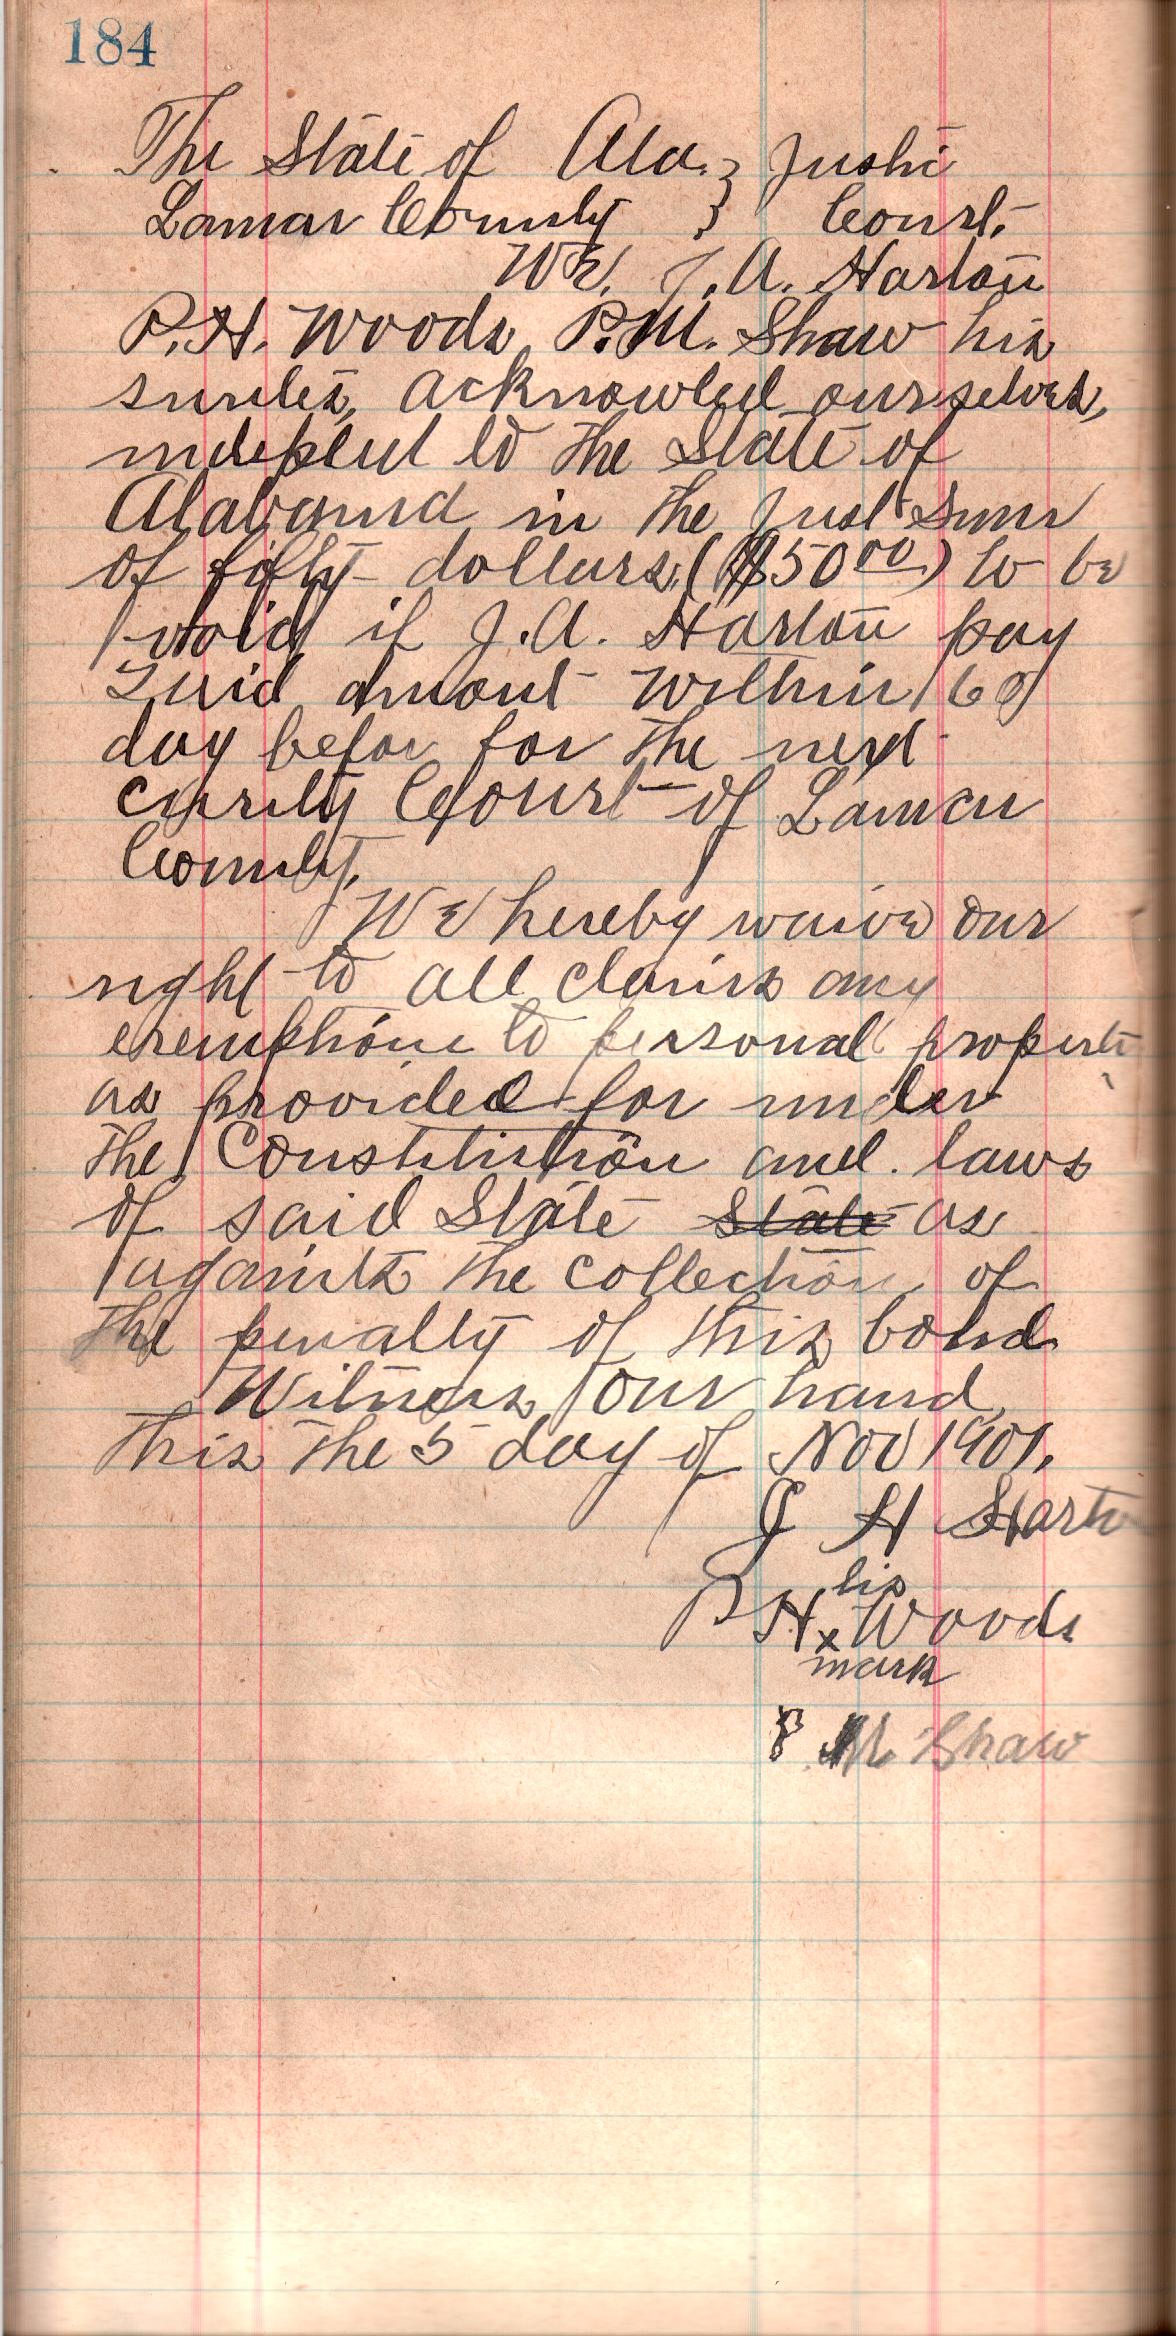 184
The State of Ala. } Justi
Lamar County } Court.
We, J. A. Harton
P. H. Woods, P. M. Shaw his
sureties, acknowled ourselves,
indepted to the State of
Alabama in the just sum
of fifty dollars, ($50.00) to be
void if J. A. Harton pay
said amont within 60
day befor for the next
County Court of Lamar
County.
We hereby waive our
right to all claims any
exemptions to personal property
as provided for under
the Constitution and laws
of said State State as
againts the collection of
the penalty of this bond
Witness our hand
this the 5 day of Nov 1901.
J H Harton
his
P H x Woods
mark
P M Shaw